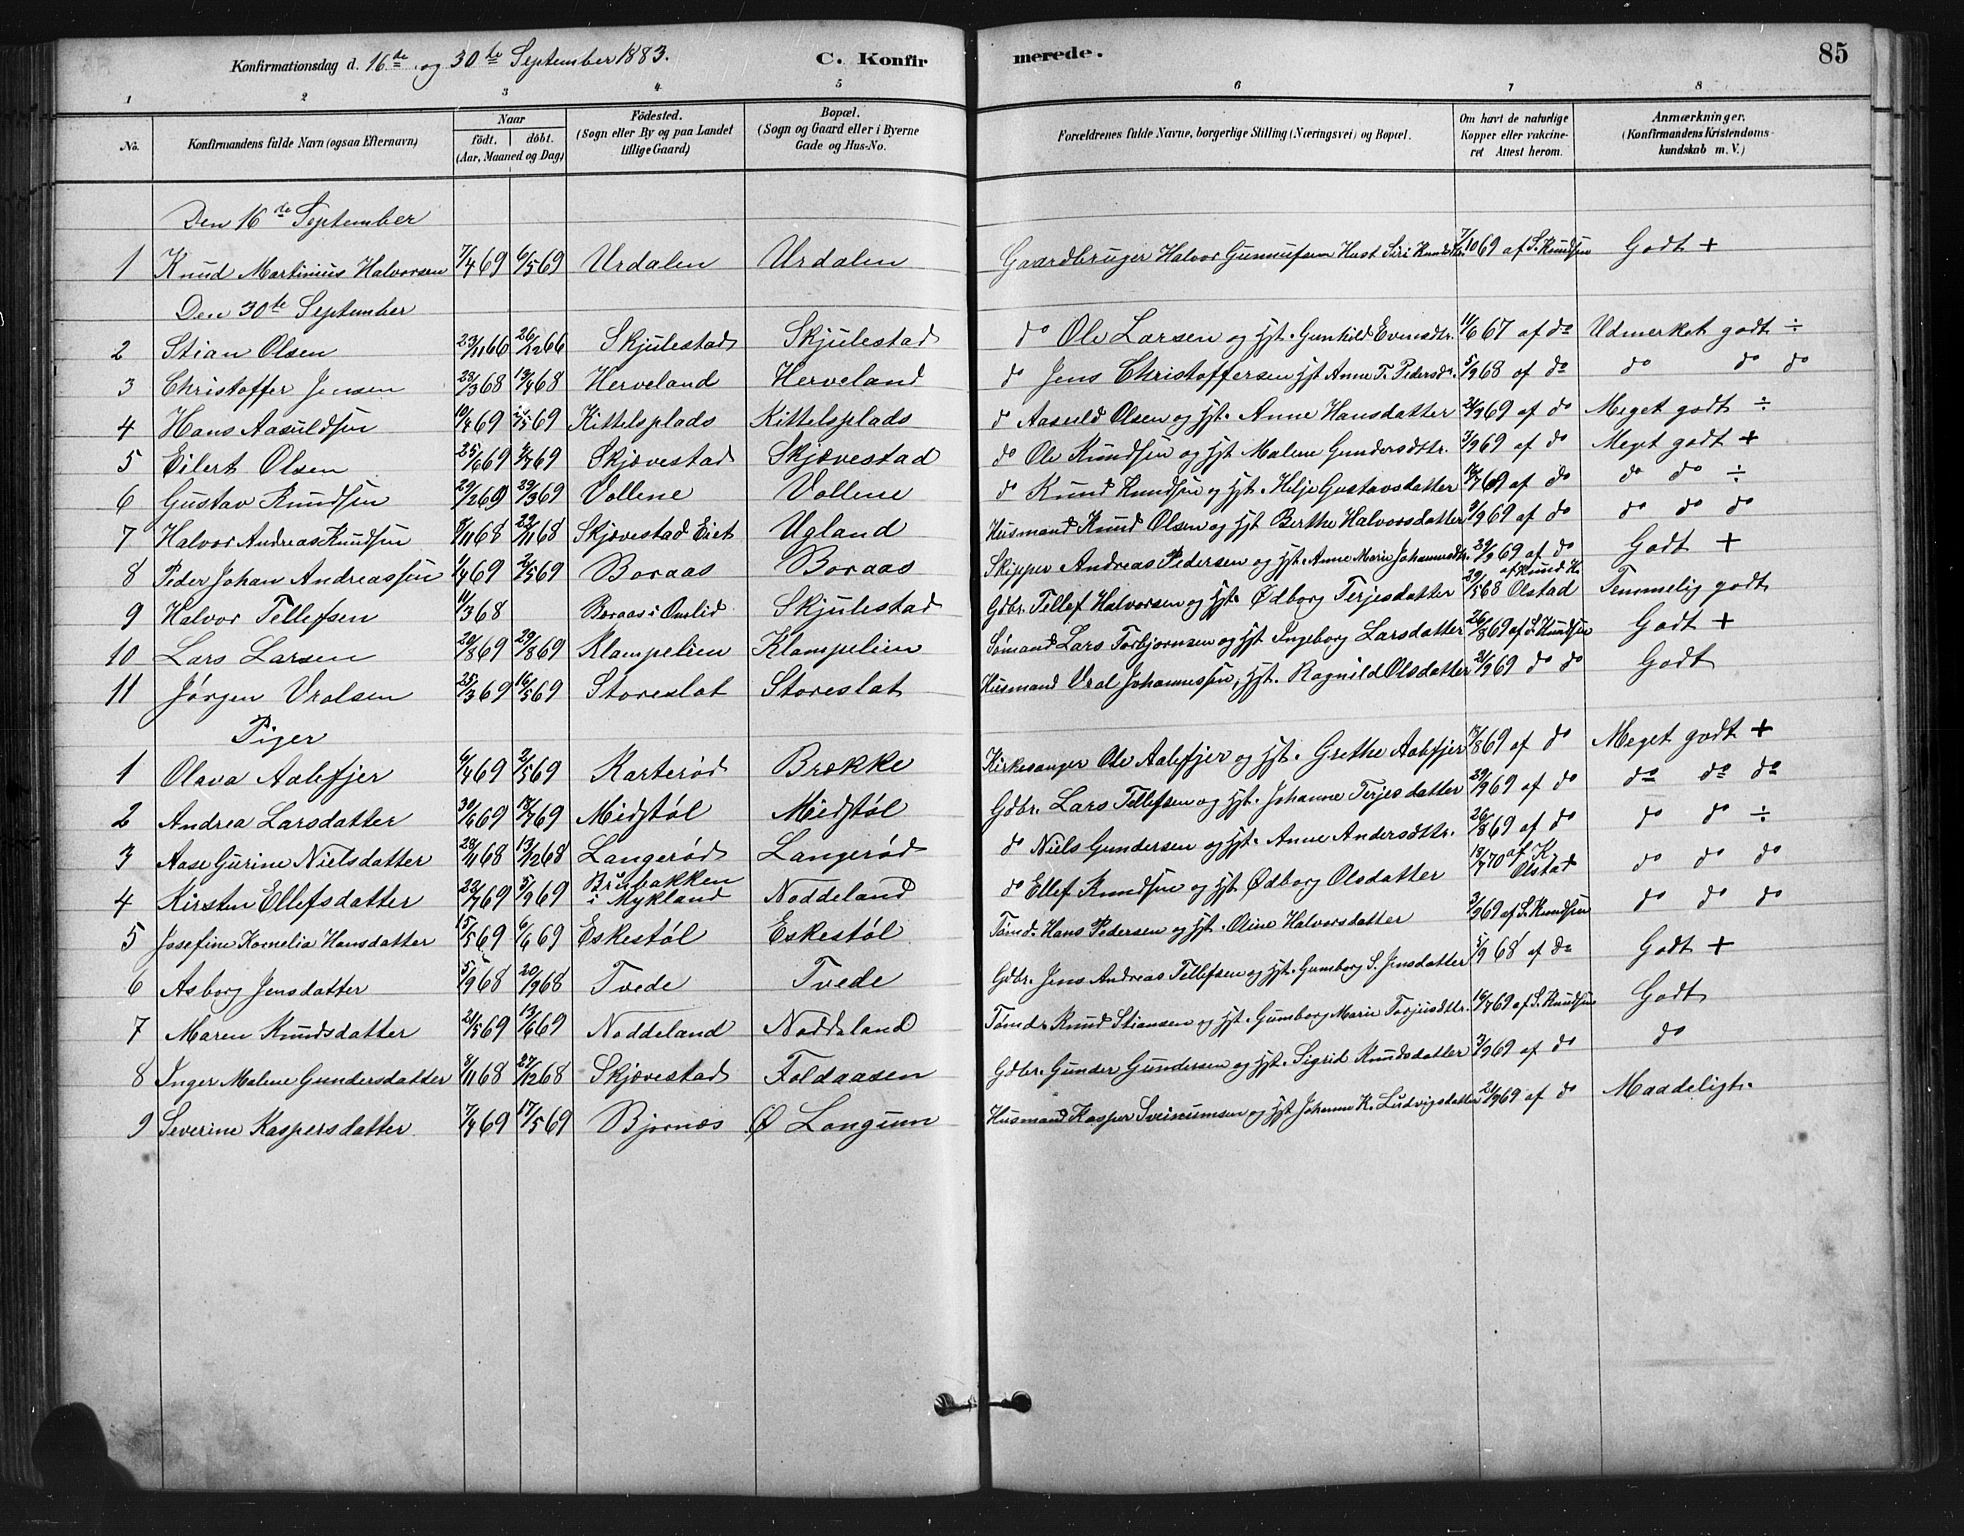 Konfirmationsdag d. 16de og 30te September 1883. C. Konfirmerede. 85
1 2 3 4 5 6 7 8
No. Konfirmandens fulde Navn (ogsaa Efternavn) Naar födt. döbt. (Aar, Maaned og Dag) Födested. (Sogn eller By og paa Landet tillige Gaard) Bopæl. (Sogn og Gaard eller i Byerne Gade og Hus-No. Forældrenes fulde Navne, borgerlige Stilling (Næringsvei) og Bopæl. Om havt de naturlige Kopper eller vakcineret Attest herom. Anmærkninger. (Konfirmandens Kristendomskundskab m. V.)
Den 16de September
1 Knud Martinius Halvorsen 7/4 69 6/5 69 Urdalen Urdalen Gaardbruger Halvor Gunnufsen Hust Siri 7/10 69 af S. Knudsen Godt +
Den 30te September
2 Stian Olsen 23/11 66 26/12 66 Skjulestad Skjulestad do Ole Larsen og Hst. Gunhild Evensdtr. 11/6 67 af do Udmerket godt ÷
3 Christoffer Jensen 23/3 68 13/4 68 Herveland Herveland do Jens Christoffersen Hst Anne T. Pedersd. 5/9 68 af do do do do
4 Hans Aasuldsen 10/4 69 /5 69 Kittelsplads Kittelsplads do Aasuld Olsen og Hst. Anne Hansdatter 2/9 69 af do Meget godt ÷
5 Eilert Olsen 25/6 69 /7 69 Skjævestad Skjævestad do Ole Knudsen og Hst Malene Gundersdtr. 3/9 69 af do Meget godt +
6 Gustav Knudsen 20/2 69 29/3 69 Vollene Vollene do Knud Knudsen og Hst. Helje Gustavsdatter 17/7 69 af do do do ÷
7 Halvor Andreas Knudsen 8/11 68 22/11 68 Skjævestad Eiet Ugland Husmand Knud Olsen og Hst Berthe Halvorsdatter 3/9 69 af do do do do
8 Peder Johan Andreassen 1/4 69 2/5 69 Boraas Boraas Skipper Andreas Pedersen og Hst. Anne Marie Johannesdtr. 29/9 69 af do Godt +
9 Halvor Tellefsen 11/3 68 Boraas i Omlid Skjulestad Gdbr. Tellef Halvorsen og Hst. Ødborg Terjesdatter 29/5 68 af Knud K. Olstad Temmelig godt
10 Lars Larsen 20/8 69 29/8 69 Klampelien Klampelien Sømand Lars Torbjornsen og Hst Ingeborg Larsdatter 26/8 69 af S. Knudsen Godt +
11 Jørgen Vralsen 25/3 69 16/5 69 Storeslot Storeslot Husmand Vral Johannessen, Hst. Ragnild Olsdatter 21/9 69 do do Godt
Piger
1 Olava Aalefjer 6/4 69 2/5 69 Karterød Brække Kirkesanger Ole Aalefjer og Hst. Grethe Aalefjer 17/8 69 af do Meget godt +
2 Andrea Larsdatter 30/6 69 18/7 69 Midstøl Midstøl Gdbr. Lars Tellefsen og Hst. Johanne Terjesdatter 29/9 69 af do do do do
3 Aase Gurine Nielsdatter 28/11 68 13/12 68 Langerød Langerød do Niels Gundersen og Hst. Anne Andersdttr. 26/8 69 af do do do ÷
4 Kirsten Ellefsdatter 22/7 69 5/9 69 Brubakken i Mykland Noddeland do Ellef Knudsen og Hst Ødborg Olsdatter 13/7 70 af K Olstad do do do
5 Josefine Kornelia Hansdatter 15/5 69 6/6 69 Eskestøl Eskestøl Tømd. Hans Pedersen og Hst. Oline Halvorsdatter 3/9 69 af S. Knudsen do do do
6 Asborg Jensdatter 5/9 68 20/9 68 Tvede Tvede Gdbr. Jens Andreas Tellefsen og Hst. Gumborg S. Jensdatter 5/9 68 af do Godt +
7 Maren Knudsdatter 21/5 69 13/6 69 Noddeland Noddeland Tømd. Knud Stiansen og Hst. Gumborg Marie Torjusdtr. 16/7 69 af S. Knudsen Godt
8 Inger Malene Gundersdatter 8/11 68 27/12 68 Skjævestad Foldaasen Gdbr. Gunder Gundersen og Hst. Sigrid Knudsdatter 3/9 69 af do do
9 Severine Kaspersdatter 7/4 69 17/5 69 Bjornæs Ø Langum Husmand Kasper Sveinumsen og Hst Johanne K. Ludvigsdatter 21/9 69 af do Maadeligt.